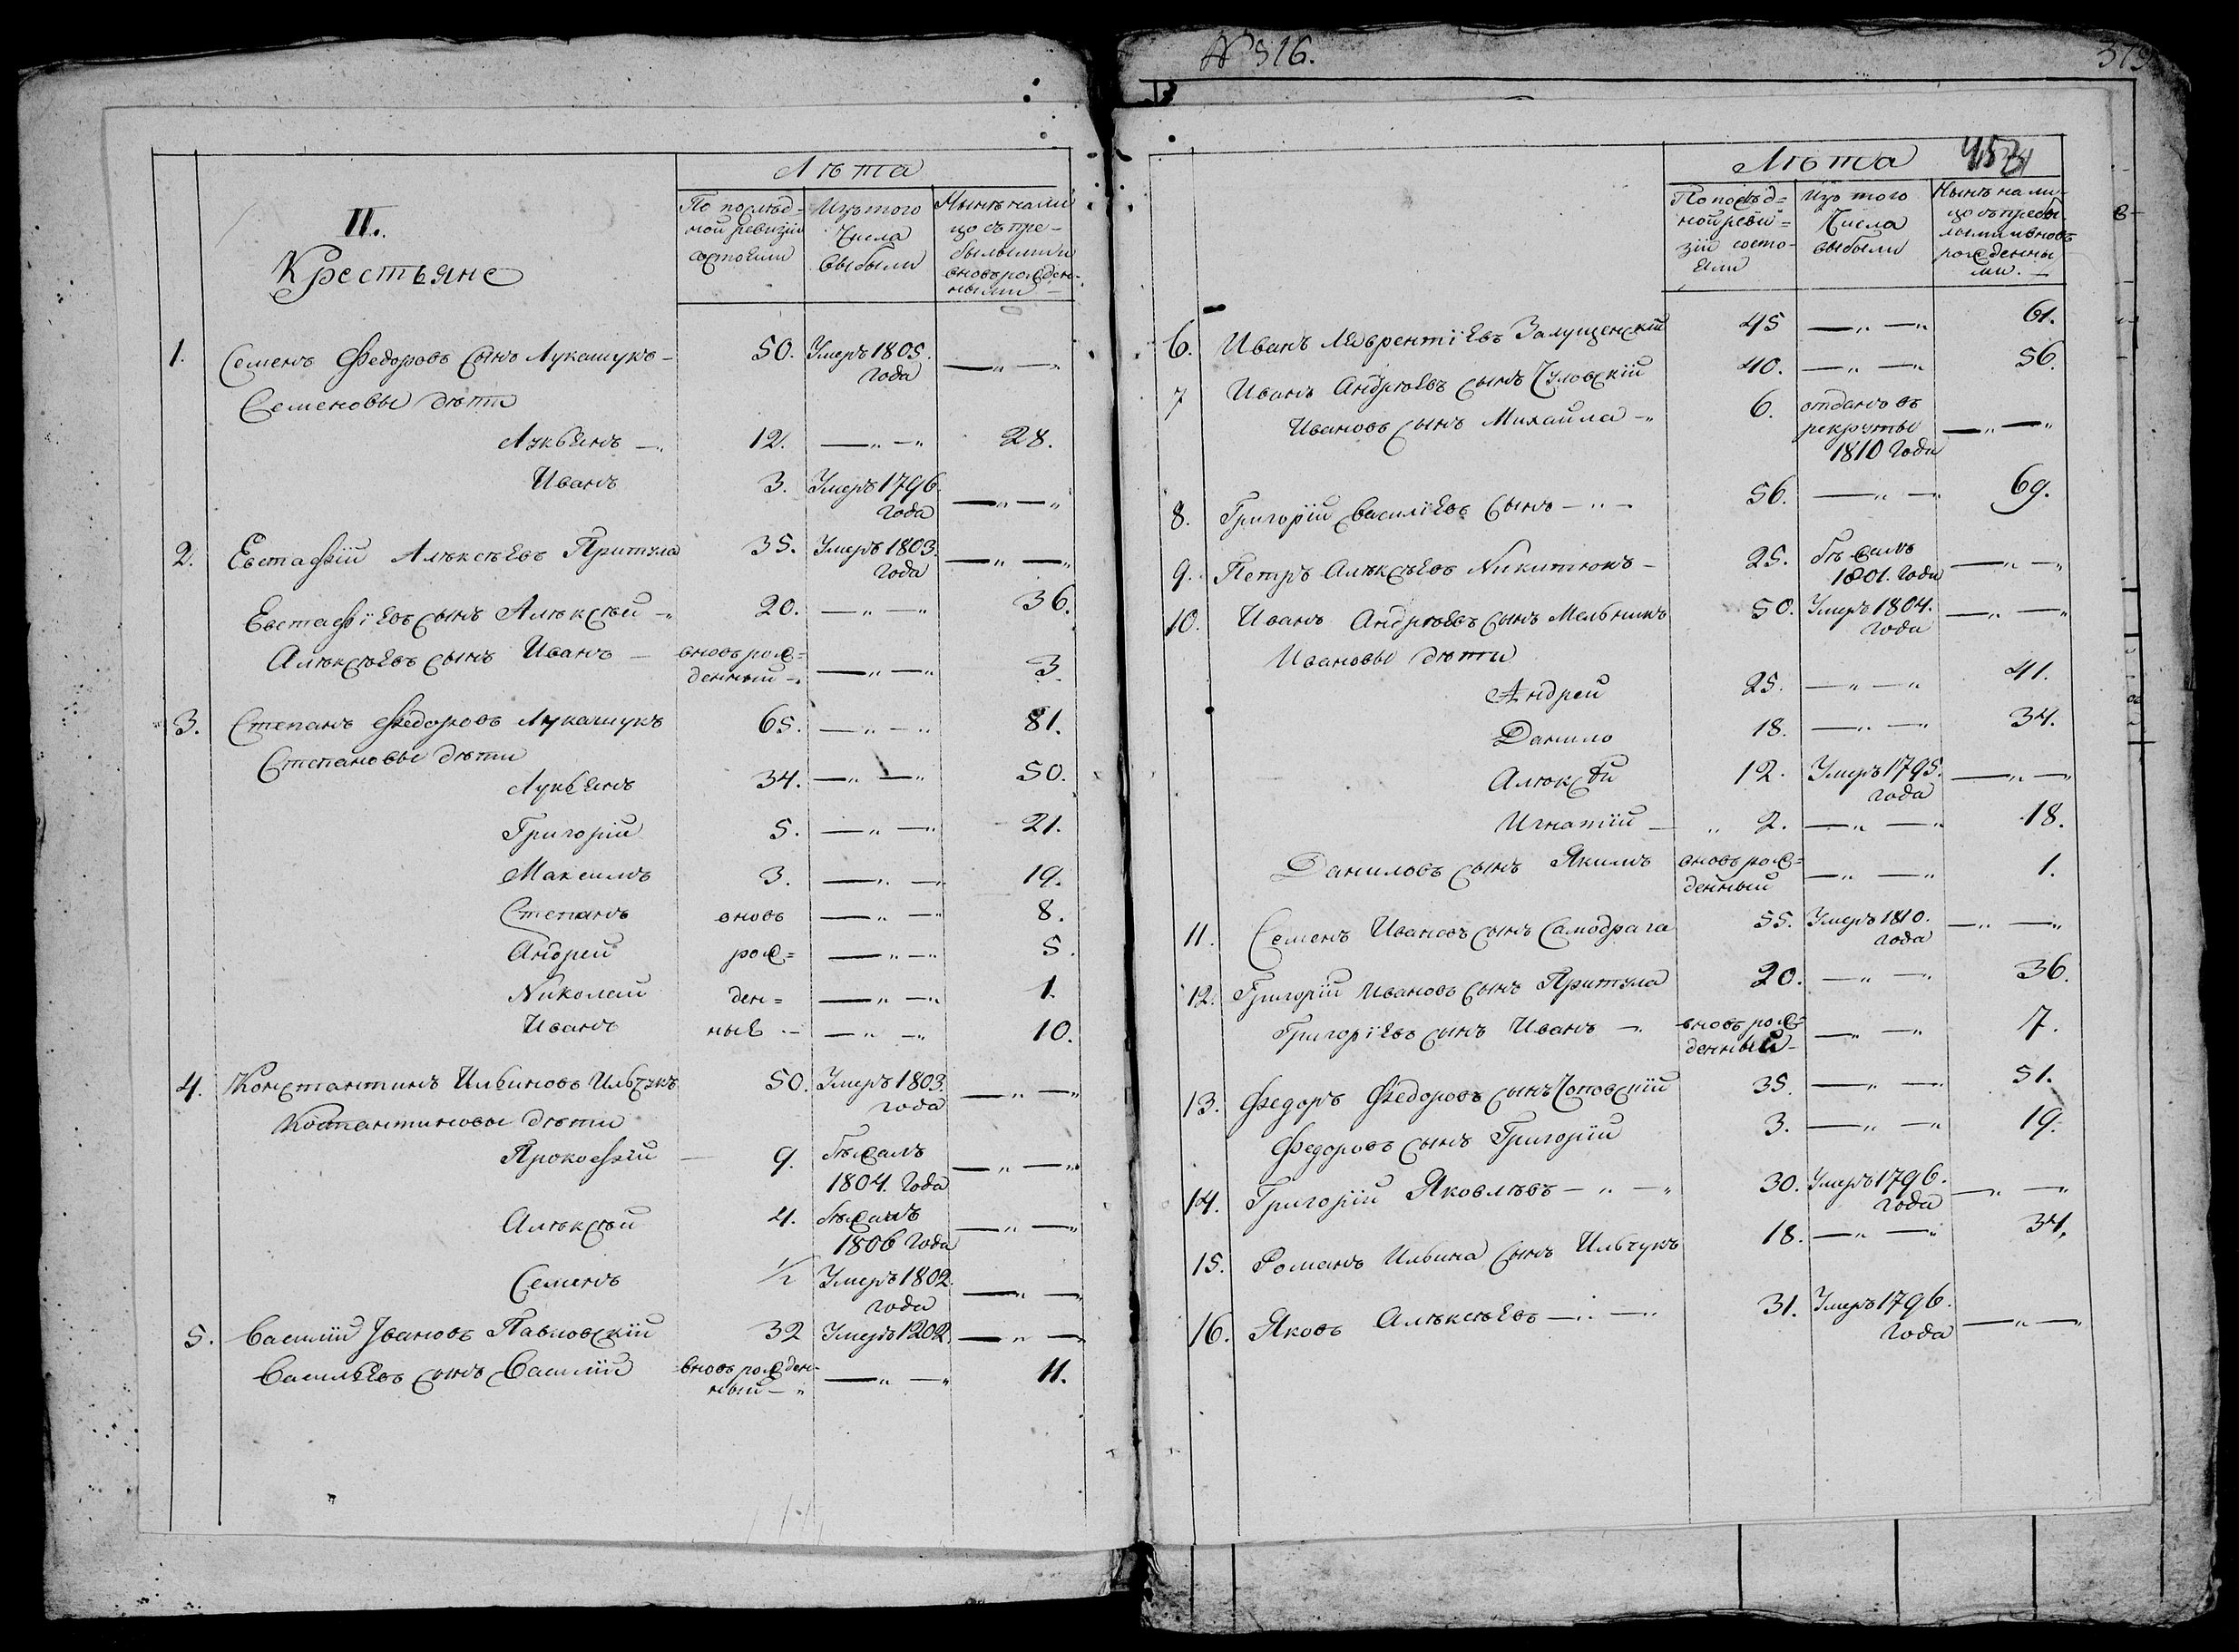 Лѣта
II.
Крестьяне
По послѣд-
ной ревизіи
состояли
Изъ того
числа
выбыли
Нынѣ на ли
цо съ при-
былыми и
вновь рожден-
ными
1. Семенъ Федоровъ сынъ Лукашукъ 50. Умеръ 1805.
года
Семеновы дѣти
Лукьянъ 12. 28.
Иванъ 3. Умеръ 1796
года
2. Евстафій Алѣксѣевъ Притула 35. Умеръ 1803.
года
Евстафіевъ сынъ Алѣксѣй 20. 36.
Алѣксѣевъ сынъ Иванъ вновь рож= 3.
денный
3. Степанъ Федоровъ Лукашукъ 65. 81.
Степановы дѣти
Лукьянъ 34. 50.
Григорій 5. 21.
Максимъ 3. 19.
Степанъ вновь 8.
Андрей рож= 5.
Николай ден= 1.
Иванъ ные 10.
4. Константинъ Ильиновъ Ильчукъ 50. Умеръ 1803.
года
Костантиновы дѣти
Прокофій 9. бѣжалъ
1804. года
Алѣксѣй 4. бѣжалъ
1806 года
Семенъ 1/2 Умеръ 1802.
года
5. Василій Ивановъ Павловскій 32 Умеръ 1202.
Васильевъ сынъ Василій вновь рожден- 11.
ный
№ 316.
319
453
Лѣта
По послѣд=
ной реви=
зіи состо-
яли
Изъ того
числа
выбыли
Нынѣ на ли-
цо съ прибы
лыми и вновь
рожденны
ми.
6. Иванъ Лаврентіевъ Залущенскій 45 61.
7 Иванъ Андрѣевъ сынъ Чуловскій 40. 56.
Ивановъ сынъ Михайла 6. отданъ въ
рекруты
1810 года
8. Григорій Василіевъ сынъ 56. 69.
9. Петръ Алѣксѣевъ Никитюкъ 25. бѣжалъ
1801. года
10. Иванъ Андрѣевъ сынъ Мельникъ 50. Умеръ 1804.
года
Ивановы дѣти
Андрей 25. 41.
Данило 18. 34.
Алѣксѣй 12. Умеръ 1795.
года
Игнатій 2. 18.
Даниловъ сынъ Якимъ вновь рож= 1.
денный
11. Семенъ Ивановъ сынъ Самодрага 55. Умеръ 1810.
года
12. Григорій Ивановъ сынъ Притула 20. 36.
Григоріевъ сынъ Иванъ вновь рож= 7.
денный
13. Федоръ Федоровъ сынъ Чоповскій 35. 51.
Федоровъ сынъ Григорій 3. 19.
14. Григорій Яковлѣвъ 30. Умеръ 1796.
года
15. Романъ Ильина сынъ Ильчукъ 18. 34.
16. Яковъ Алѣксѣевъ 31. Умеръ 1796.
года